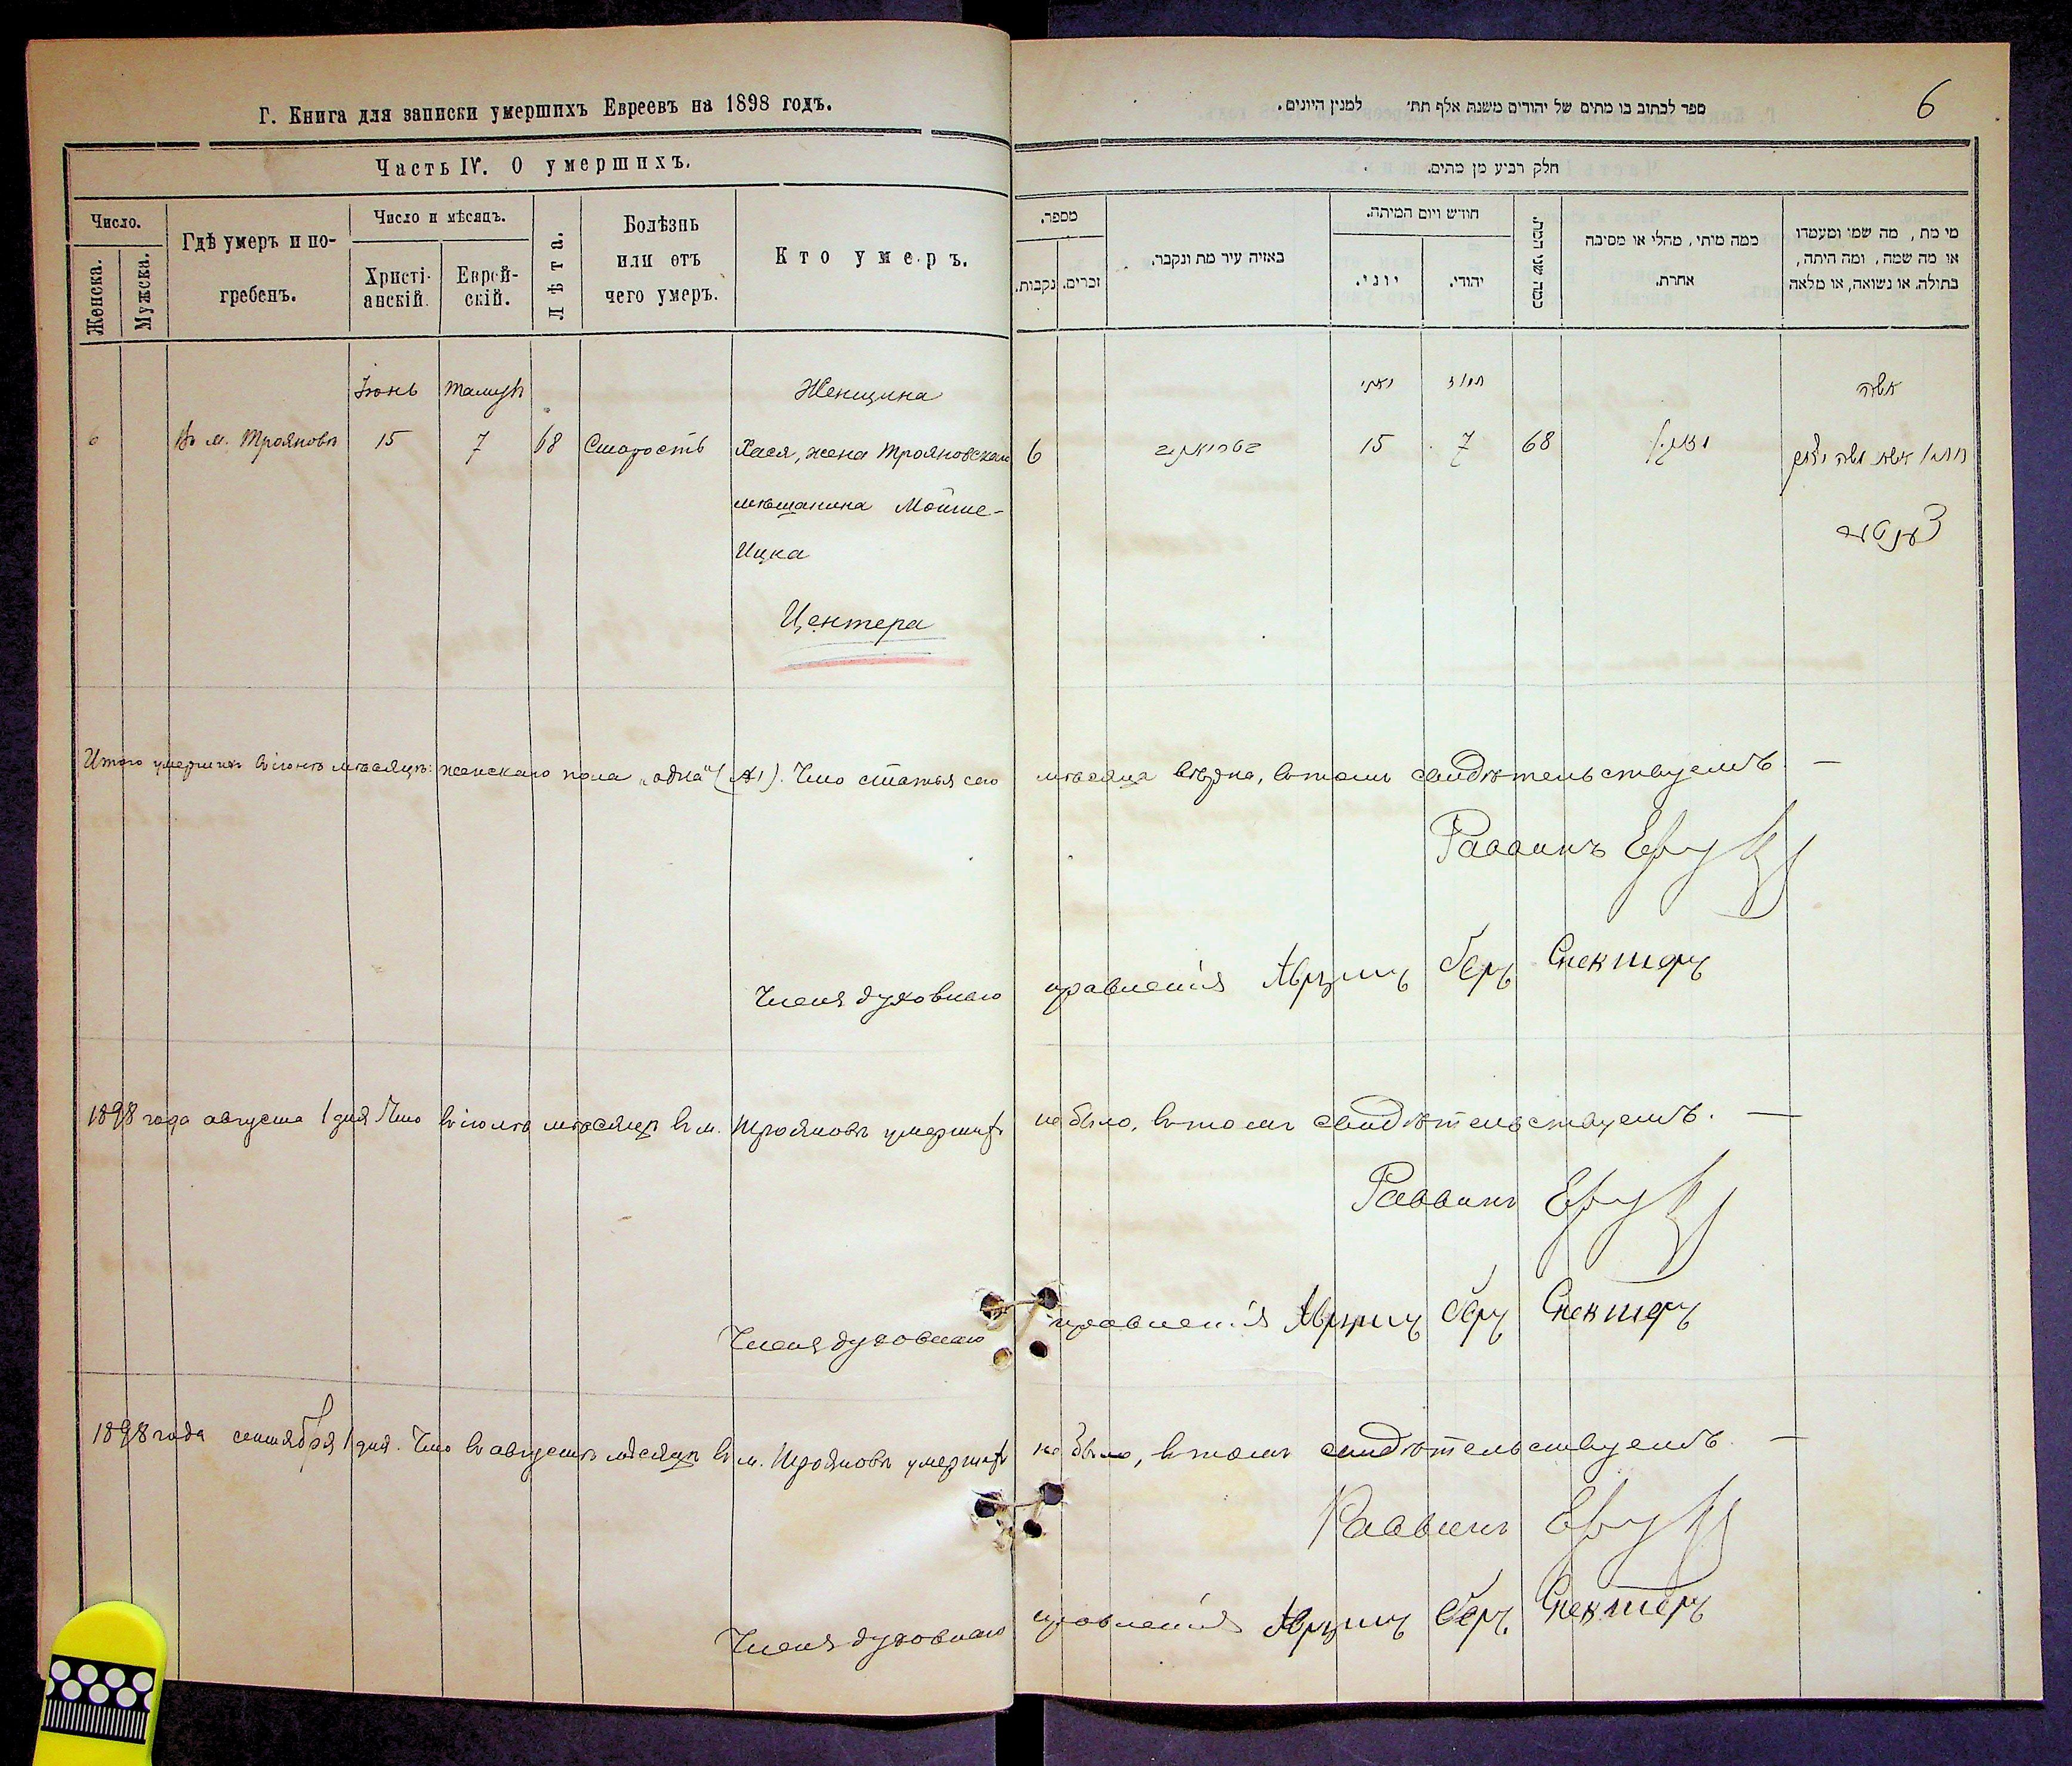 Г. Книга для записки умершихъ Евреевъ на 1898 годъ.
Часть IV. О умершихъ.
Число.
Женска.
Мужска.
Гдѣ умеръ и по-
гребенъ.
Число и мѣсяцъ.
Христі-
анскій.
Еврей-
скій.
Лѣта.
Болѣзнь
или отъ
чего умеръ.
Кто умеръ.
Іюнь Тамузъ Женщина
6 Въ м. Трояновѣ 15 7 68 Старость Хася, жена Трояновскаго
мѣщанина Мойше-
Ицка
Центера
ספר לכתוב בו מתים של יהודים משנת אלף תת׳ למנין היונים.
6
חלק רביע מן מתים.
מספר.
נקבות.
זכרים.
באיזה עיר מת ונקבר.
חודש ויום המיתה.
יוני.
יהודי.
כמה שני המת.
ממה מיתי, מחלי או מסיבה
אחרת.
מי מת, מה שמו ומעמדו
או מה שמה, ומה היתה,
בתולה, או נשואה, או מלאה
תמוז אשה
6 15 7 68
צענטער
Итого умершихъ въ іюнѣ мѣсяцѣ: женскаго пола „одна“ (№1). Что статья сего мѣсяца вѣрна, въ томъ свидѣтельствуемъ. —
Раввинъ
Членъ духовнаго правленія Аврумъ Беръ Спекторъ
1898 года августа 1 дня Что въ іюлѣ мѣсяцѣ въ м. Трояновѣ умершихъ не было, въ томъ свидѣтельствуемъ. —
Раввинъ
Членъ духовнаго правленія Аврумъ Беръ Спекторъ
1898 года сентября 1 дня. Что въ августѣ мѣсяцѣ въ м. Трояновѣ умершихъ не было, въ томъ свидѣтельствуемъ. —
Раввинъ
Членъ духовнаго правленія Аврумъ Беръ Спекторъ